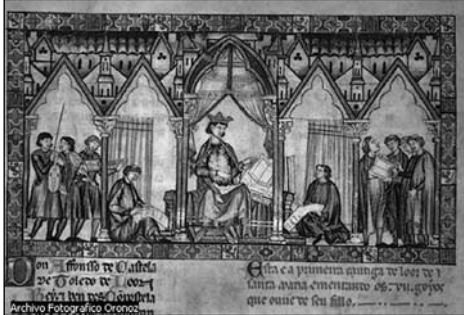 Don Affonso de Castela
de Toledo de Leon
Rey e ben des Conpostela
Esta e a primeira cantiga de loor de
santa maria ementando os .vii. goyos
que ouue de seu fillo.
Archivo Fotografico Oronoz